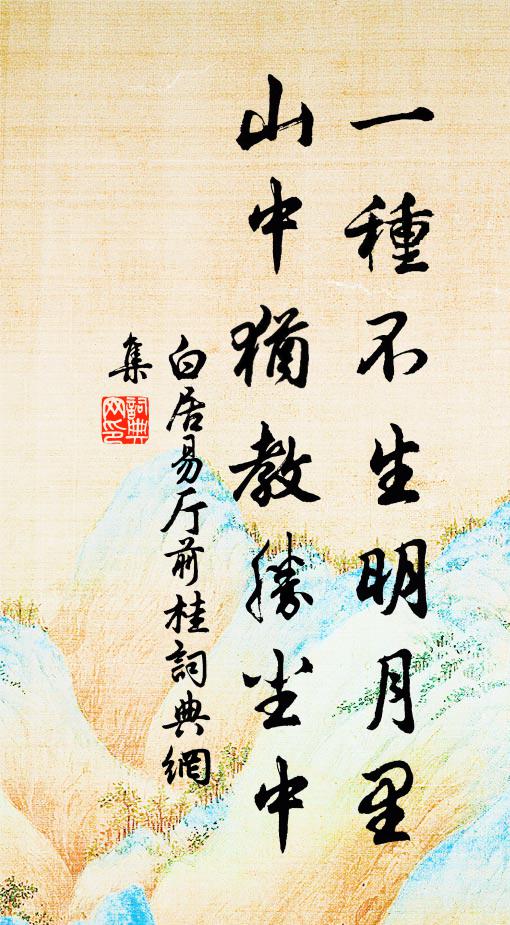 一種不生明月里
山中猶教勝尘中
白居易厅前桂詞典網
集
詞典
网印